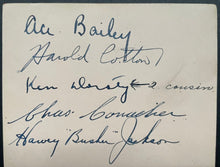 Ace Bailey
Harold Cotton
Ken Doraty ← a cousin
Chas Conacher
Harvey "Busher" Jackson